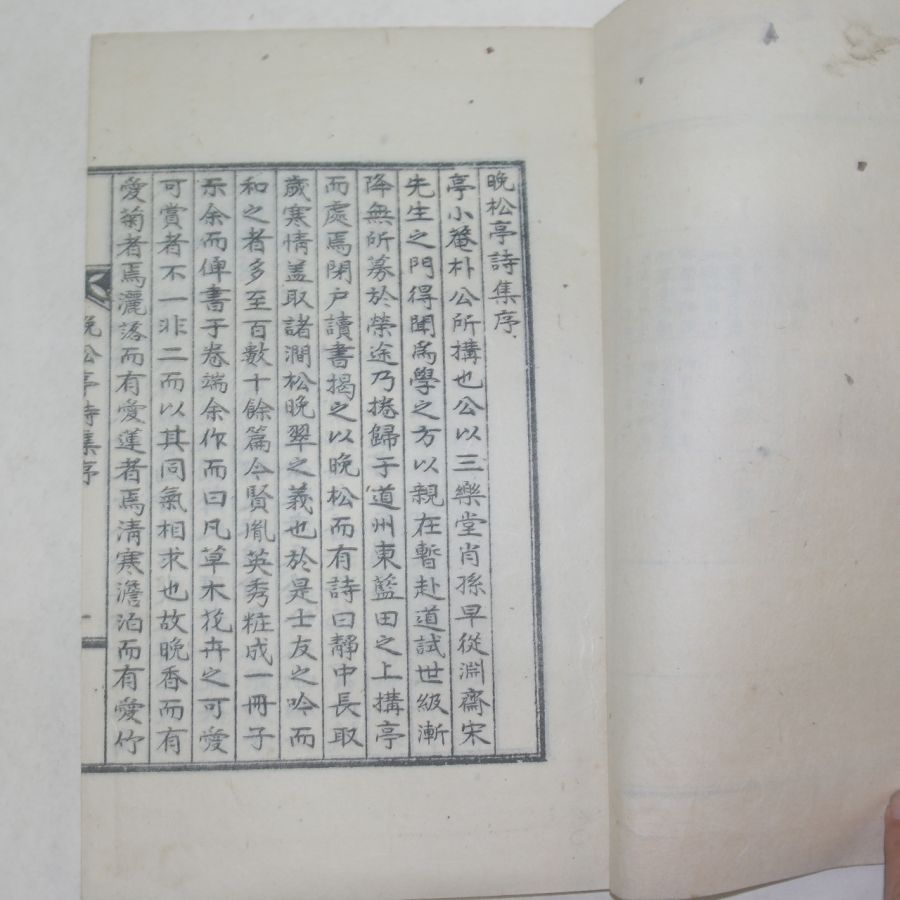 晩松亭詩集序
亭小菴朴公所搆也公以三樂堂肖孫早從淵齋宋
先生之門得聞爲學之方以親在暫赴道試世級漸
降無所募於榮途乃捲歸于道州東藍田之上搆亭
而處焉閉戶讀書揭之以晩松而有詩曰靜中長取
歲寒情盖取諸澗松晩翠之義也於是士友之吟而
和之者多至百數十餘篇今賢胤英秀粧成一冊子
示余而俾書于卷端余作而曰凡草木花卉之可愛
可賞者不一非二而以其同氣相求也故晩香而有
愛菊者焉灑落而有愛蓮者焉清寒澹泊而有愛竹
晩松亭詩集序
一